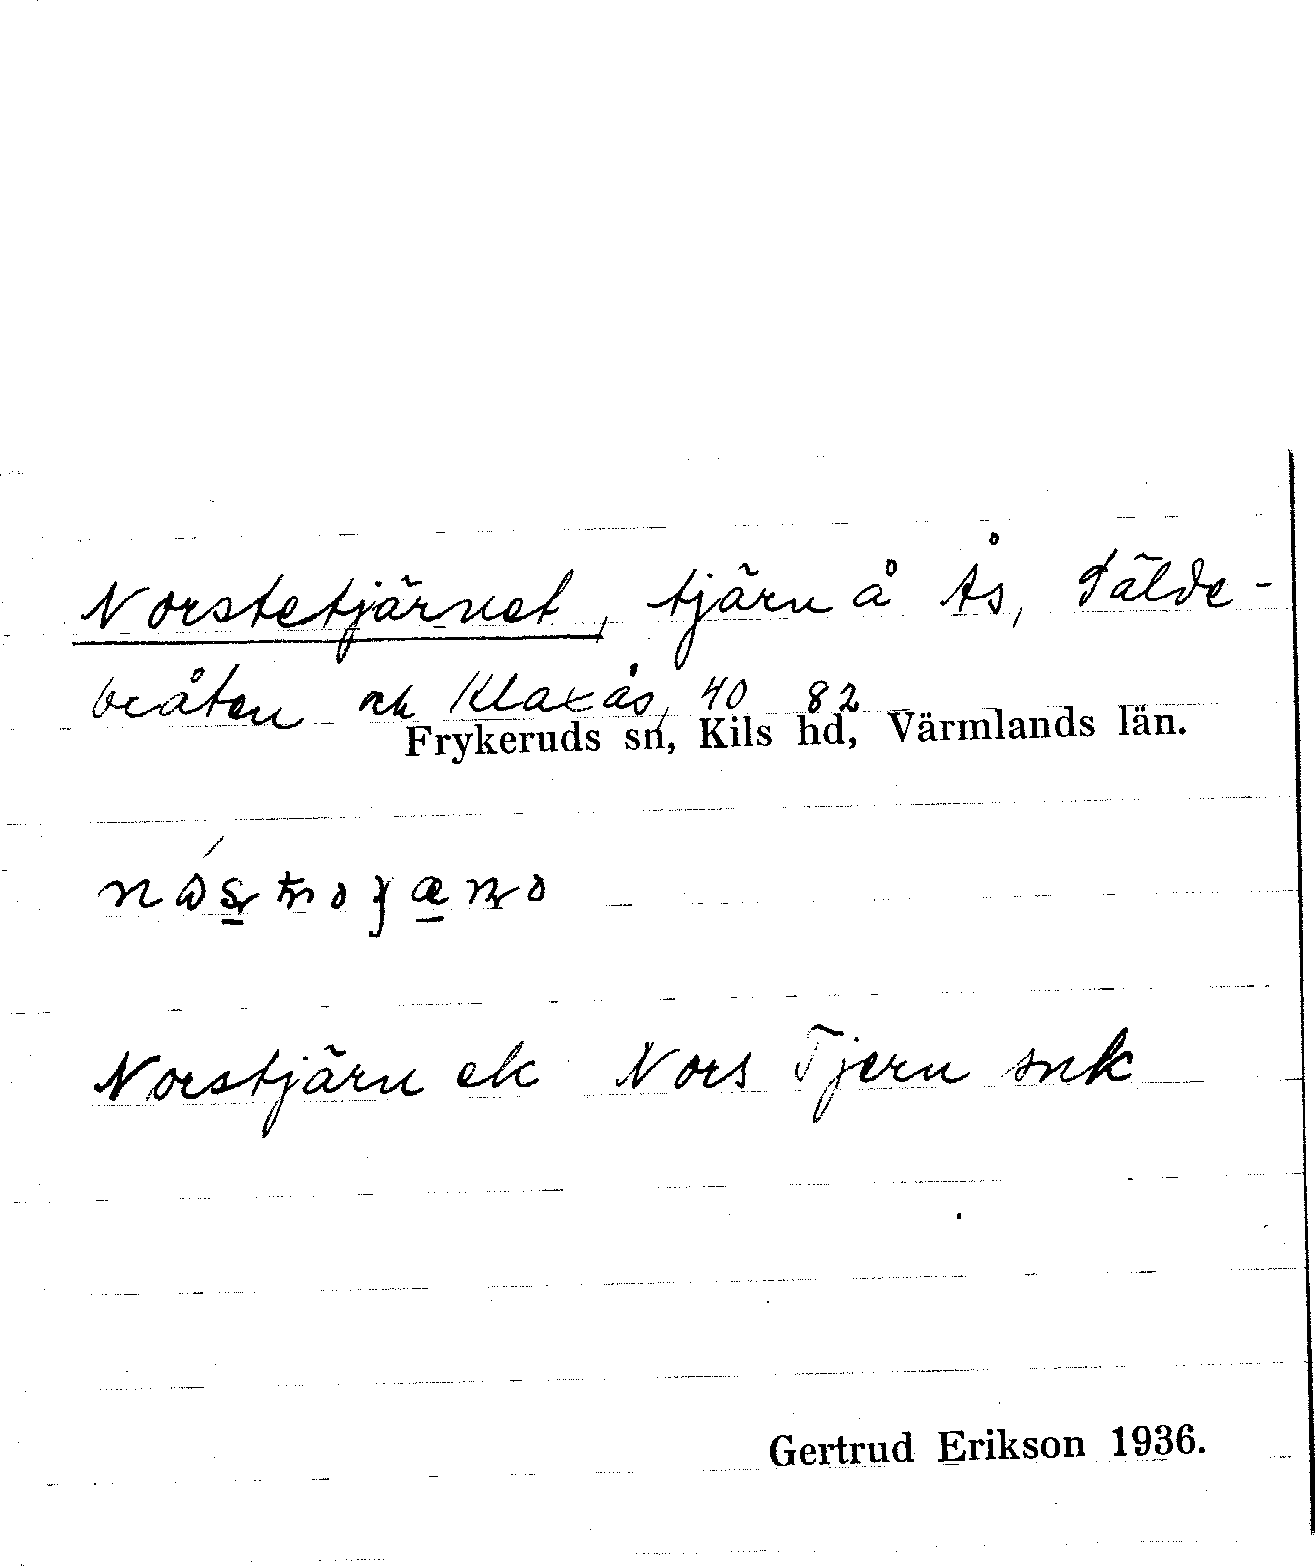 Norstetjärnet, tjärn å Ås, Tälde-
bråten och Klaxås, 40 82
Frykeruds sn, Kils hd, Värmlands län.
Norstjärn ek Nors Tjern snk
Gertrud Erikson 1936.